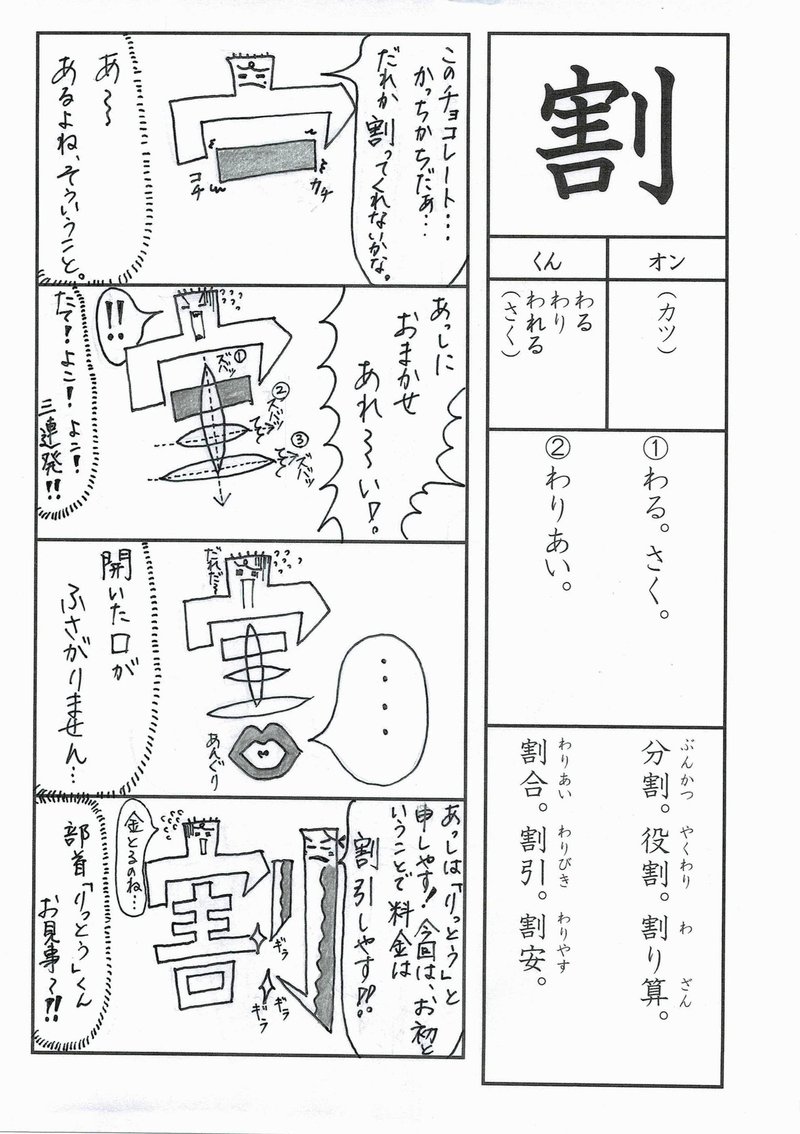 割
オン
(カツ)
くん
わる
わり
われる
(さく)
①わる。さく。
②わりあい。
ぶんかつ やくわり わ ざん
分割。役割。割り算。
わりあい わりびき わりやす
割合。割引。割安。
このチョコレート・・・
かっちかちだぁ・・・
だれか割ってくれないかな。
カチ
コチ
あ〜
あるよね、そういうこと。
あっしに
おまかせ
あれ〜い!。
!!
①
ズバッ
②
ズバッ
③
ズバッ
たて!よこ!よこ!
三連発!!
だれだ〜
・・・・
あんぐり
開いた口が
ふさがりません…
あっしは「りっとう」と
申しやす!今回は、お初と
いうことで料金は
割引しやす!?
金とるのね…
ギラ
ギラ
ギラ
部首「りっとう」くん
お見事〜!!